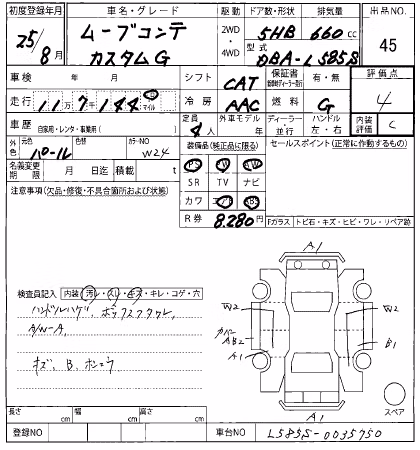 初度登録年月 車名・グレード 駆動 ドア数・形状 排気量 出品NO.
25/8月 ムーブコンテ カスタムG 2WD ・ 4WD 5HB 660 cc 45
型式 DBA-L585S
車検 年 月 シフト CAT 保証書 新車時ディーラー発行 有・無 評価点
走行 11万7千144 km マイル 冷房 AAC 燃料 G 4
車歴 自家用・レンタ・事業用( ) 定員 4人 外車モデル 年 ディーラー・並行 ハンドル 左・右 内装評価 C
外色 元色 パール 色替 カラーNO W24 装備品(純正品に限る) セールスポイント(正常に作動するもの)
名義変更期限 月 日迄 積載 t PS PW ナビ
注意事項(欠品・修復・不具合箇所および状態) SR TV ナビ
カワ エアB ABS
R券 8,280円 Fガラス トビ石・キズ・ヒビ・ワレ・リペア跡
A1
検査員記入 内装 汚レ・スレ・キズ・キレ・コゲ・穴
ハンドルハゲ、
A/W-A、
キズ、B、
W2 W2
カバー
AB2 B1
A1
A1
スペア
長さ cm 幅 cm 高さ cm
登録NO 車台NO L585S-0035750